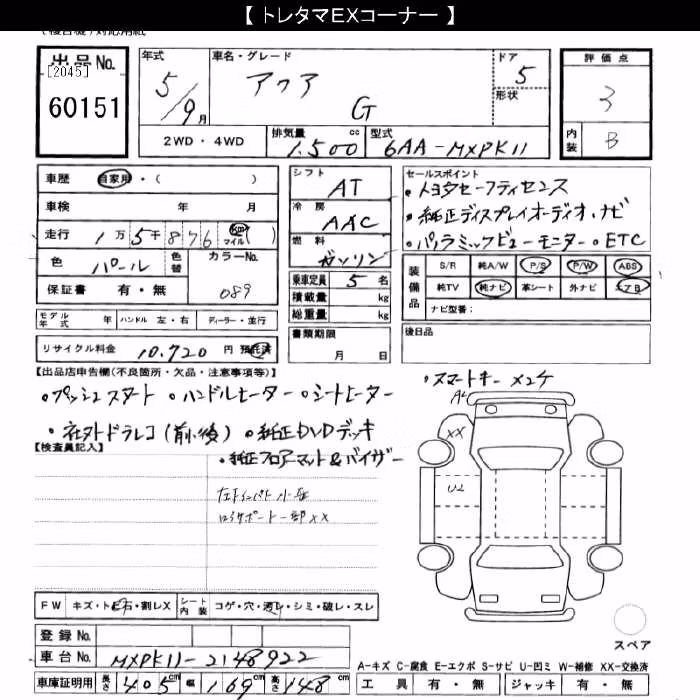 【 トレタマEXコーナー 】
出品 No. 60151
[2045]
年式 5/9 月
車名・グレード アクア G
ドア 5
形状
評価点 3
内装 B
2WD・4WD
排気量 1.500 cc
型式 6AA-MXPK11
車歴 自家用・( )
車検 年 月
走行 1万5千876 km マイル ( )
色 パール 色替
カラーNo. 089
保証書 有・無
シフト AT
冷房 AAC
燃料 ガソリン
乗車定員 5 名
積載量 kg
総重量 kg
セールスポイント
・トヨタセーフティセンス
・純正ディスプレイオーディオ・ナビ
・パノラミックビューモニター ・ETC
装備品 S/R 純A/W P/S P/W ABS
純TV 純ナビ 革シート 外ナビ エアB
ナビ型番：
モデル年式 年 ハンドル 左・右 ディーラー・並行
書類期限 月 日
後日品
リサイクル料金 10.720 円 預託済
【出品店申告欄(不良箇所・欠品・注意事項等)】
・プッシュスタート ・ハンドルヒーター ・シートヒーター ・スマートキー×2ケ
・社外ドラレコ(前後) ・純正DVDデッキ
・純正フロアマット&バイザー
【検査員記入】
XX
U2
FW キズ・ト石・割レX シート内装 コゲ・穴・汚レ・シミ・破レ・スレ
登録 No.
車台 No. MXPK11-2148922
車庫証明用 長さ 405 cm 幅 169 cm 高さ 148 cm
スペア
A-キズ C-腐食 E-エクボ S-サビ U-凹ミ W-補修 XX-交換済
工具 有・無 ジャッキ 有・無